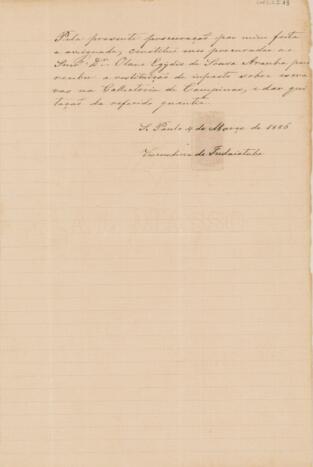 Pela presente procuração por mim feita
e assignada, constitui meu procurador ao
Snr. Dr. Olavo Egydio de Souza Aranha para
receber a restituição de imposto sobre escra
vos na Collectoria de Campinas, e dar qui
tação da referida quantia.
S. Paulo 4 de Março de 1886
Viscondessa de Indaiatuba